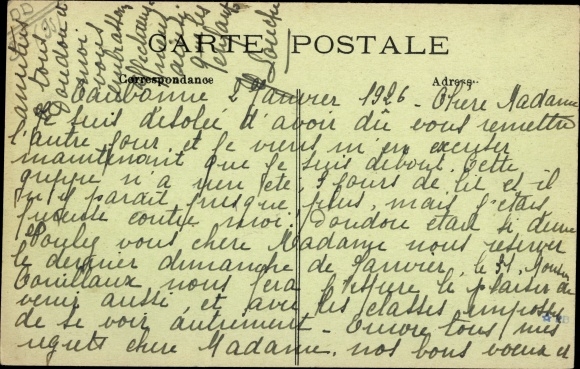 CARTE POSTALE
Correspondance
Adresse
Eaubonne 2 Janvier 1926 - Chère Madame
Je suis désolée d'avoir dû vous remettre
l'autre jour, et je viens m'en excuser
maintenant que je suis debout. Cette
grippe n'a rien été, 3 jours de lit et il
n'y paraît presque plus, mais j'étais
furieuse contre moi. Doudou était si
Voulez vous chère Madame nous réserver
le dernier dimanche de Janvier, le 31.
nous fera j'espère le plaisir de
venir aussi, et avec les classes
de se voir autrement - Encore tous mes
regrets chère Madame, nos bons voeux et
amitiés
à tous
Doudou et
moi
vous
embrassons